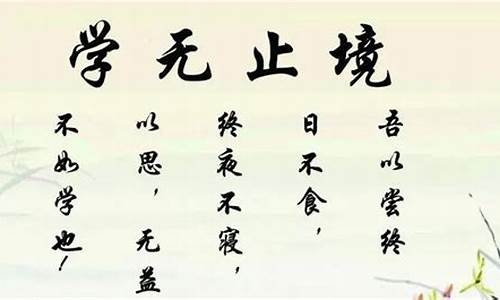 学无止境
吾以尝终
日不食，
终夜不寝，
以思，无益
不如学也！